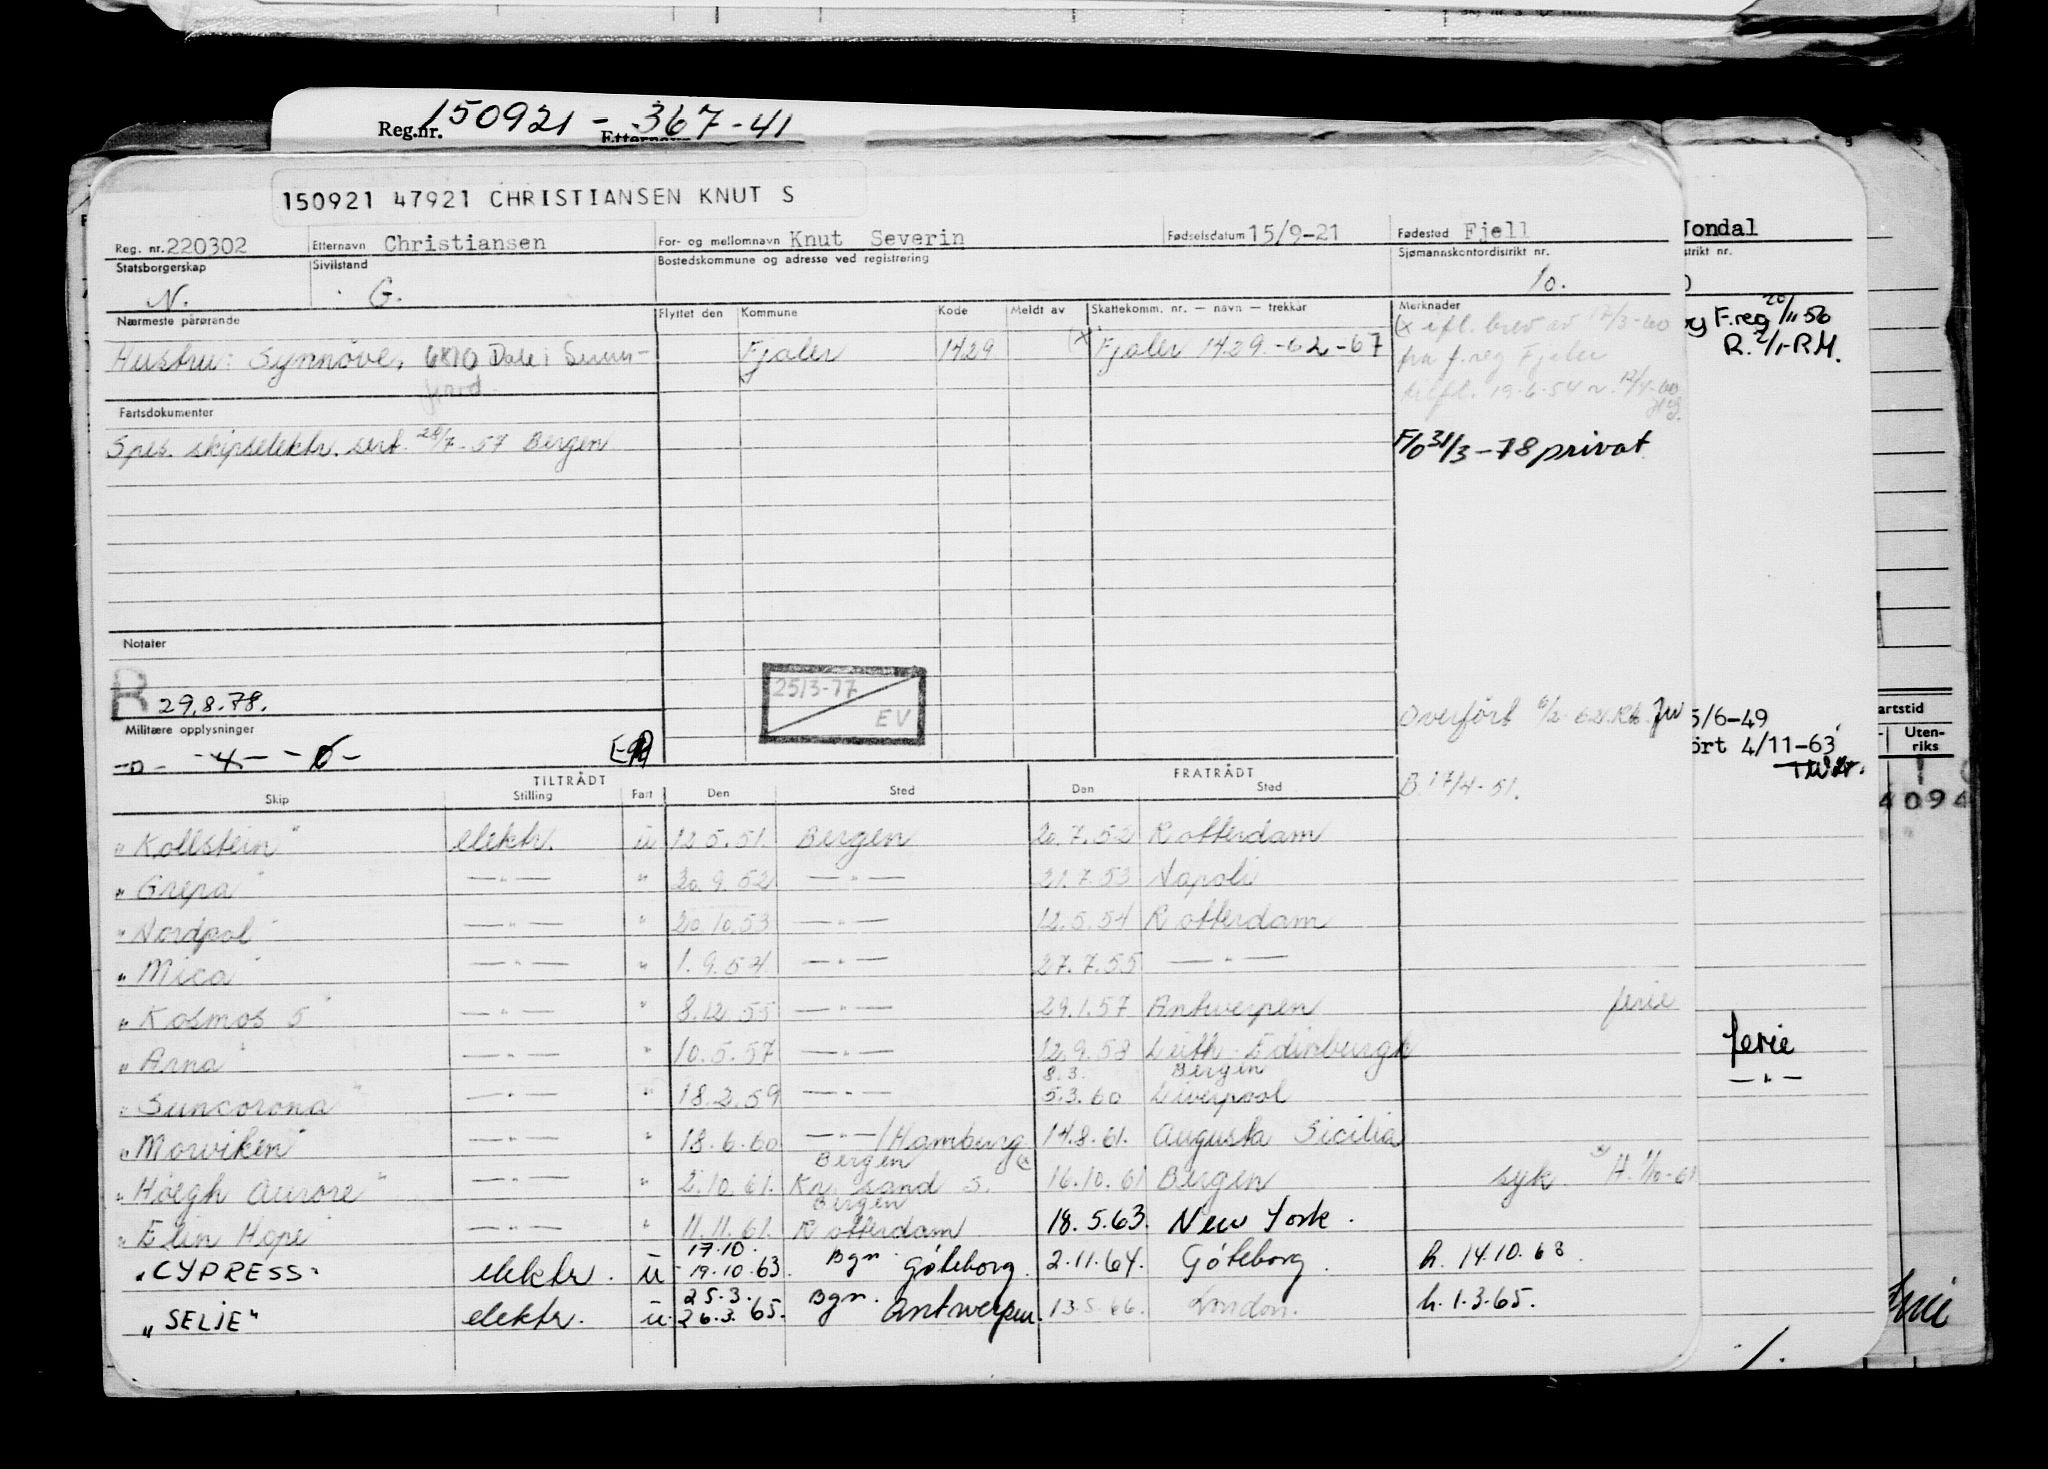 Reg.nr. 150921 - 367-41
Etternavn
150921 47921 CHRISTIANSEN KNUT S
Reg. nr. 220302 Etternavn Christiansen For- og mellomnavn Knut Severin Fødselsdatum 15/9-21 Fødested Fjell
Statsborgerskap Sivilstand Bostedskommune og adresse ved registrering Sjømannskontordistrikt nr.
N. G. 10.
Nærmeste pårørende Flyttet den Kommune Kode Meldt av Skattekomm. nr. — navn — trekkår Merknader
Hustru: Synnöve, 6810 Dale i Sunn- Fjaler 1429 (x Fjaler 1429 -62-67 (x efl. brev av 17/3-60
fjord. fra f.reg Fjaler
19-6-54
Fartsdokumenter
Spes. skipselektr. sert. 28/7-57 Bergen F/O 31/3-78 privat
Notater
R 29.8.78. 25/3-77 EV
Overfört 6/2-62
Militære opplysninger
TILTRÅDT FRATRÅDT
Skip Stilling Fart Den Sted Den Sted B. 17/4-51.
"Kollstein" elektr. u 12.5.51. Bergen 20.7.52 Rotterdam
"Grepa" —"— " 30.9.52 —"— 21.7.53 Napoli
"Nordpol" —"— " 20.10.53 —"— 12.5.54 Rotterdam
"Mica" —"— " 1.9.54 —"— 27.7.55 —"—
"Kosmos 5" —"— " 8.12.55 —"— 29.1.57 Antwerpen ferie
"Arna" —"— " 10.5.57 —"— 12.9.58 Leith-Edinburgh
8.3. Bergen
"Suncorona" —"— " 18.2.59 —"— 5.3.60 Liverpool
"Morviken" —"— " 18.6.60 —"—/Hamburg 14.8.61. Augusta Sicilia
Bergen
"Höegh Aurore" —"— " 2.10.61. Kr. sand S. 16.10.61 Bergen syk
Bergen
"Elin Hope" —"— " 11.11.61. Rotterdam 18.5.63. New York.
17.10.
"CYPRESS" elektr. u 19.10.63. Bgn. Göteborg. 2.11.64. Göteborg. h. 14.10.63.
25.3.
"SELJE" elektr. u. 26.3.65. Bgn. Antwerpen. 13.5.66. London. h. 1.3.65.
Jondal
strikt nr.
F.reg 20/11 56
R. 2/1-RM.
5/6-49
ört 4/11-63
ferie
—"—
artstid
Uten-
riks
4094